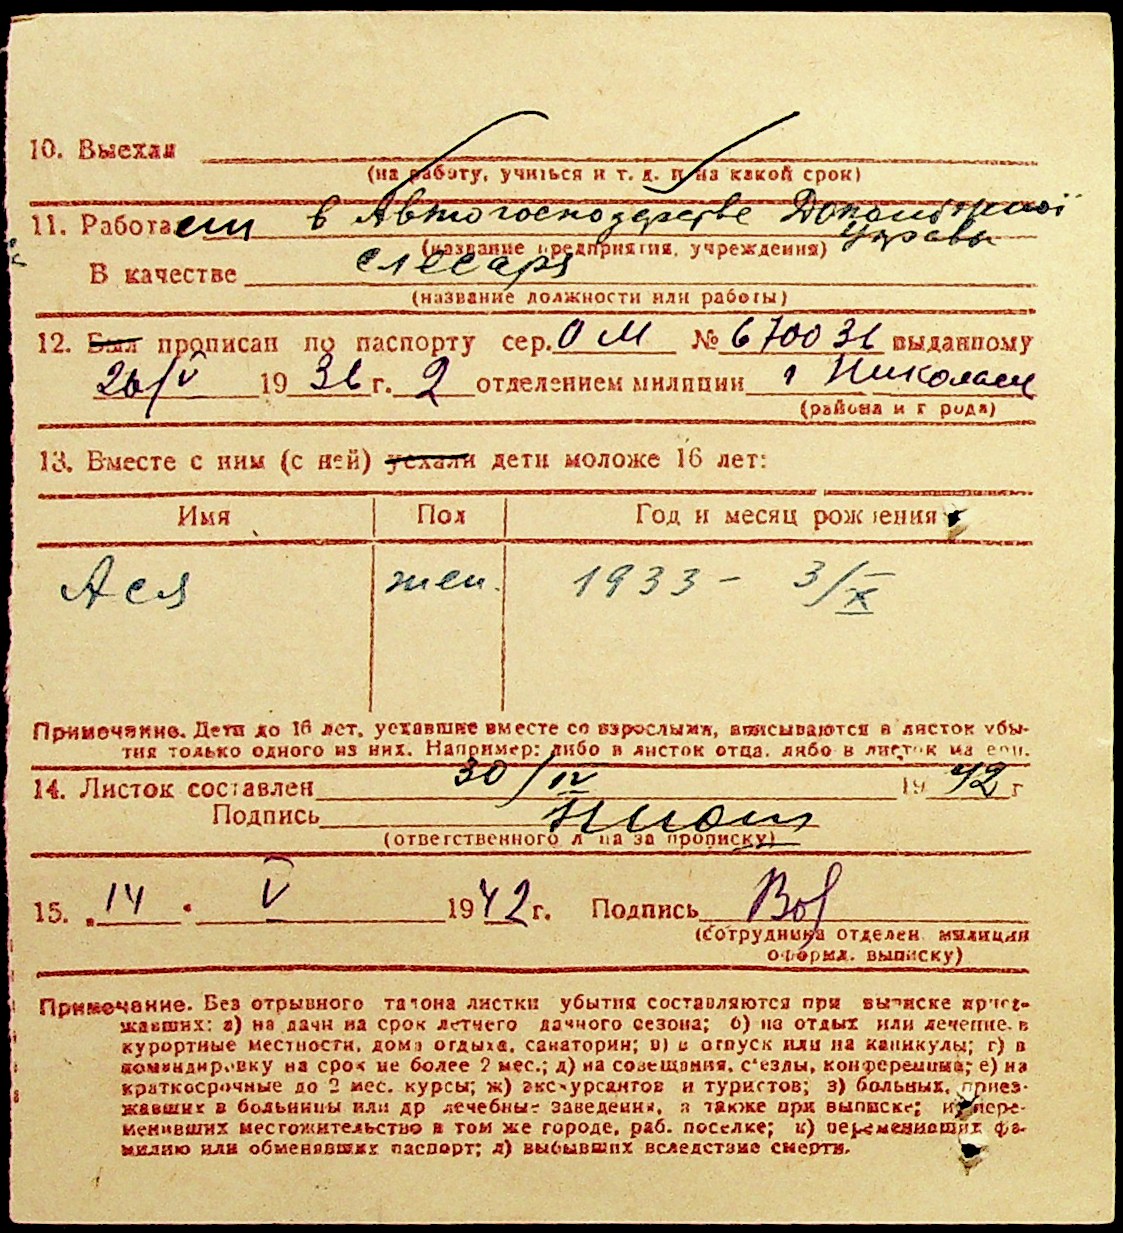 10. Выехал
(на работу, учиться и т. д. и на какой срок)
11. Работает в Автогосподарстве Допомогової Управы
(название предприятия, учреждения)
В качестве слесаря
(название должности или работы)
12. Был прописан по паспорту сер. ОМ № 670031 выданному
26/V 1936 г. 2 отделением милиции г Николаев
(района и города)
13. Вместе с ним (с ней) уехали дети моложе 16 лет:
Имя Пол Год и месяц рождения
Ася жен. 1933 - 3/X
Примечание. Дети до 16 лет, уехавшие вместе со взрослыми, вписываются в листок убы-
тия только одного из них. Например: либо в листок отца, либо в листок матери.
14. Листок составлен 30/IV 1942 г
Подпись
(ответственного лица за прописку)
15. 14 • V 1942 г. Подпись
(сотрудника отделен. милиции
оформл. выписку)
Примечание. Без отрывного талона листки убытия составляются при выписке приез-
жавших: а) на дачи на срок летнего дачного сезона; б) на отдых или лечение в
курортные местности, дома отдыха, санатории; в) в отпуск или на каникулы; г) в
командировку на срок не более 2 мес.; д) на совещания, с'езды, конференции; е) на
краткосрочные до 2 мес. курсы; ж) экскурсантов и туристов; з) больных, приез-
жавших в больницы или др лечебные заведения, а также при выписке; и) пере-
менивших местожительство в том же городе, раб. поселке; к) переменивших фа-
милию или обменявших паспорт; л) выбывших вследствие смерти.